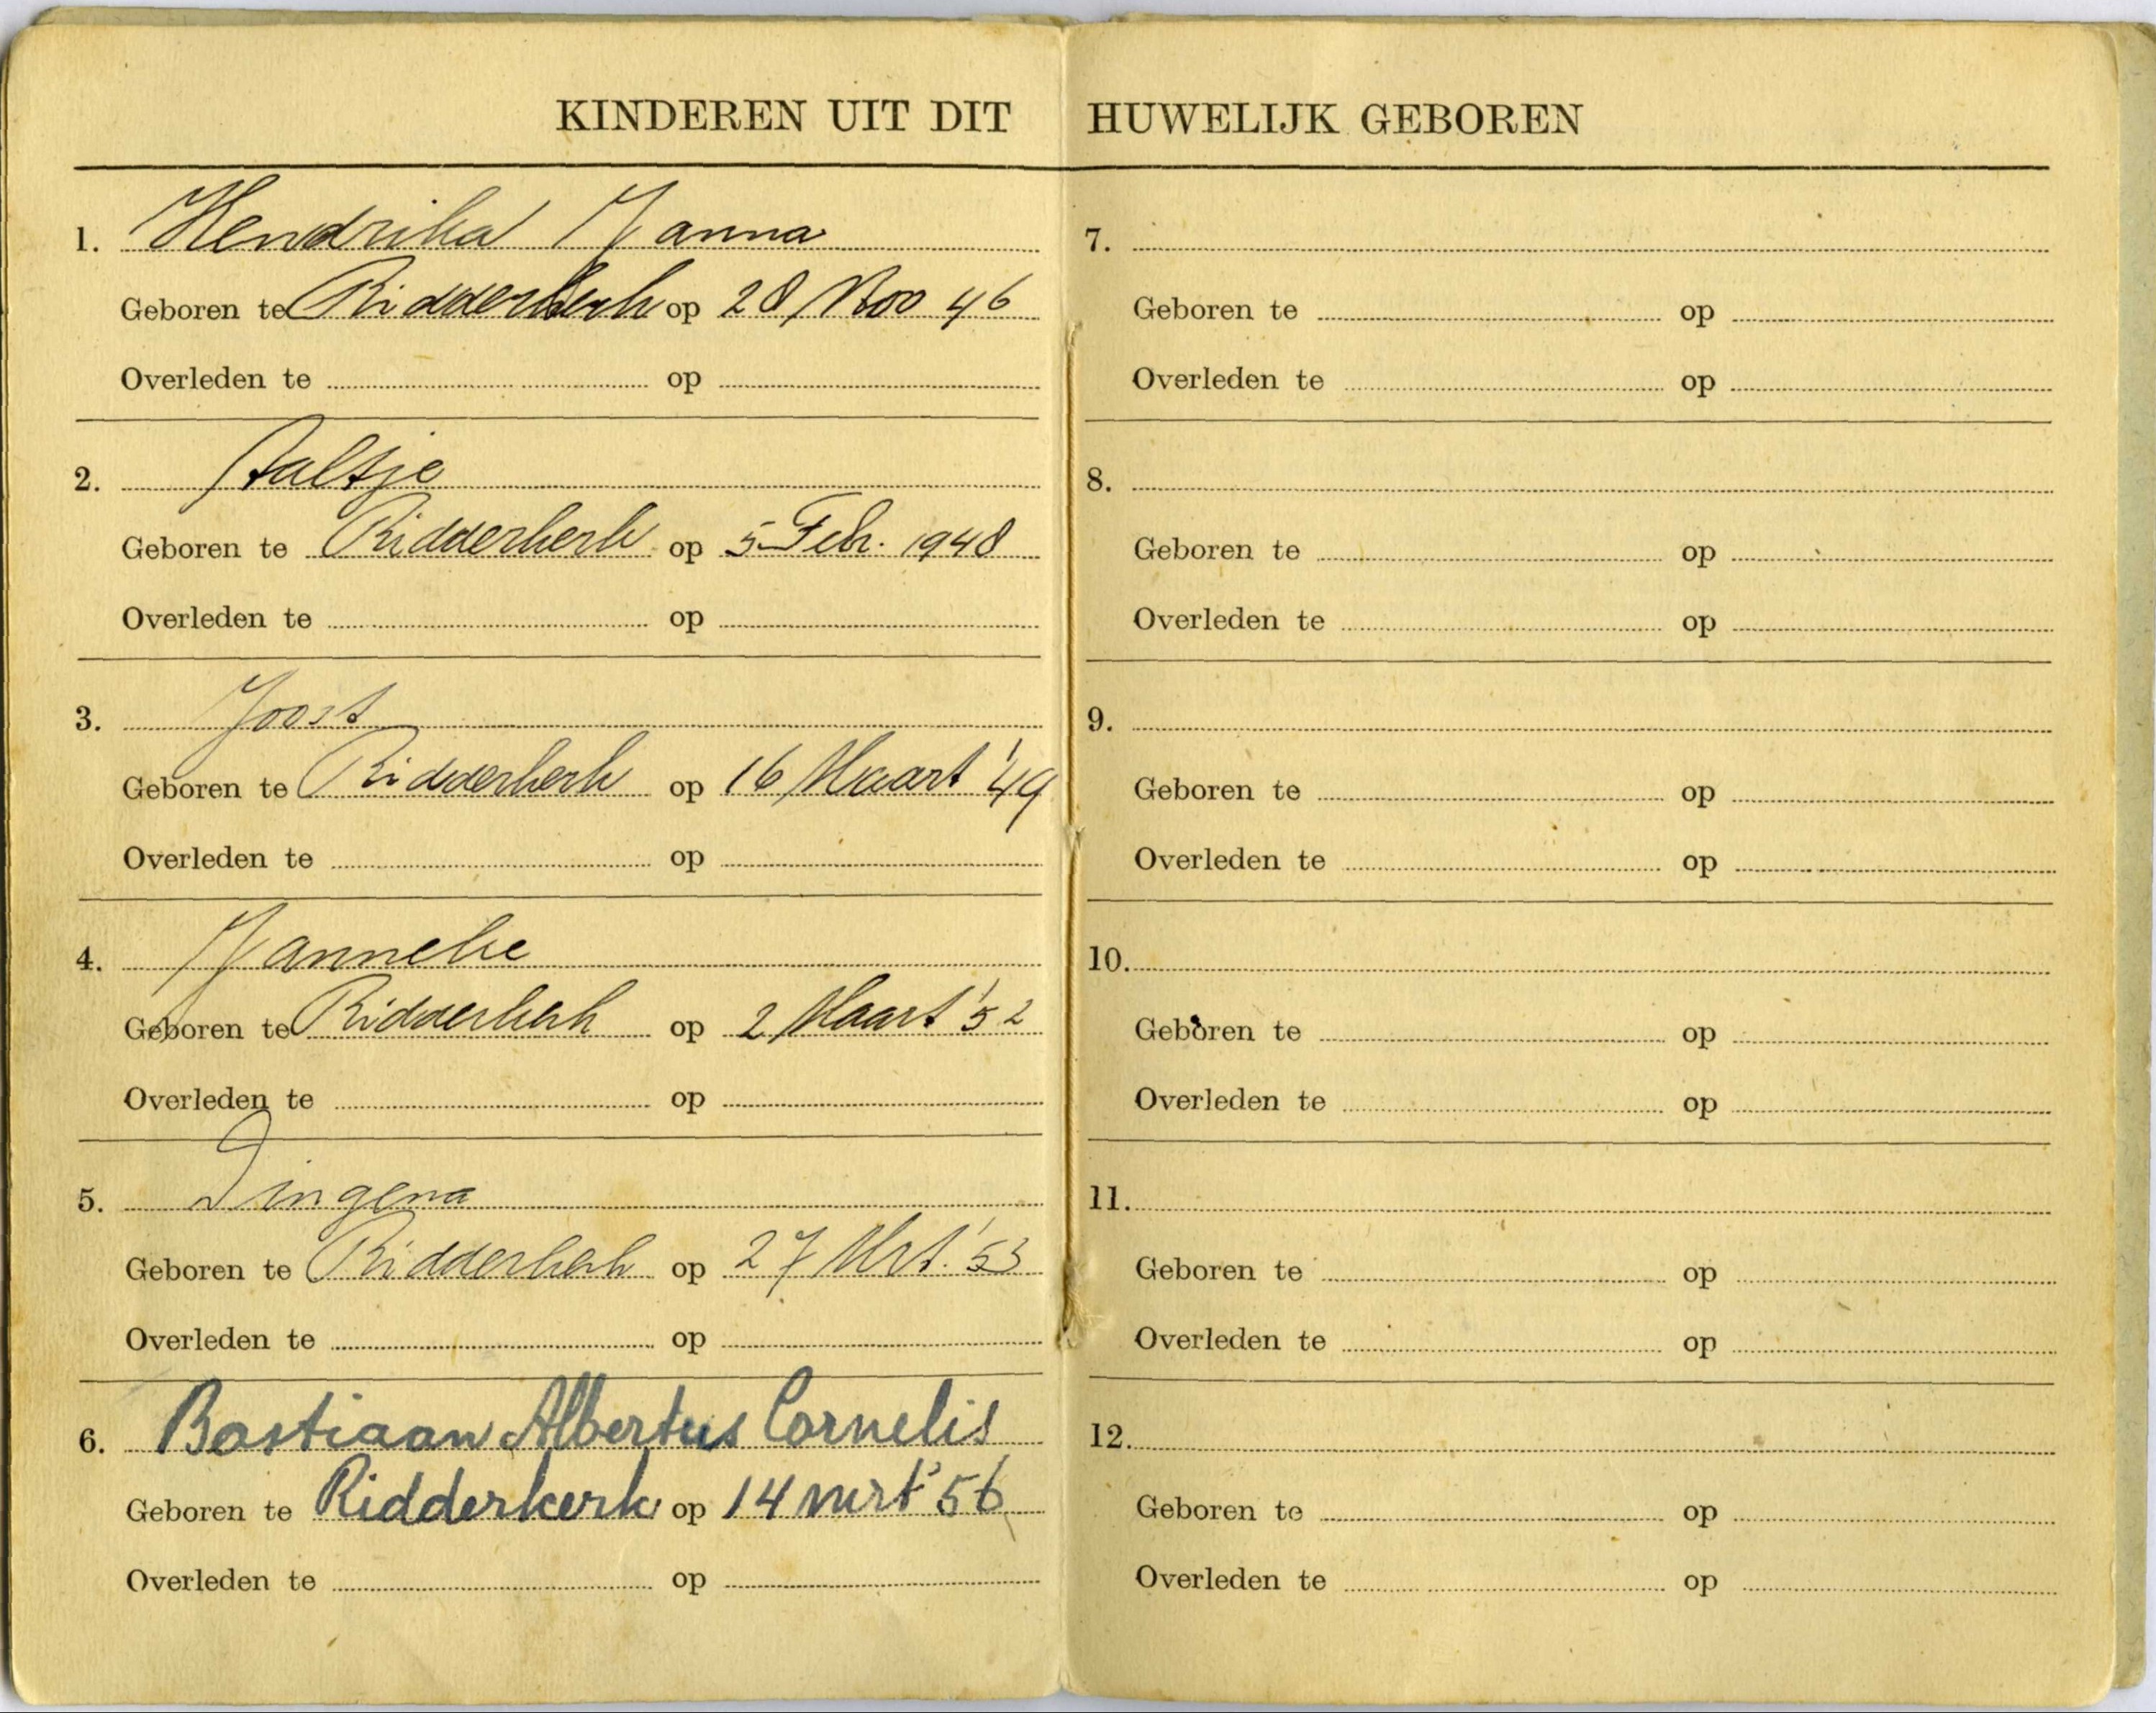 KINDEREN UIT DIT HUWELIJK GEBOREN
1. Hendrika Janna
Geboren te Ridderkerk op 28 Nov 46
Overleden te op
2. Aaltje
Geboren te Ridderkerk op 5 Feb. 1948
Overleden te op
3. Joost
Geboren te Ridderkerk op 16 Maart '49
Overleden te op
4. Janneke
Geboren te Ridderkerk op 2 Maart '52
Overleden te op
5. Dingena
Geboren te Ridderkerk op 27 Mrt. '53
Overleden te op
6. Bastiaan Albertus Cornelis
Geboren te Ridderkerk op 14 mrt '56
Overleden te op
7.
Geboren te op
Overleden te op
8.
Geboren te op
Overleden te op
9.
Geboren te op
Overleden te op
10.
Geboren te op
Overleden te op
11.
Geboren te op
Overleden te op
12.
Geboren te op
Overleden te op